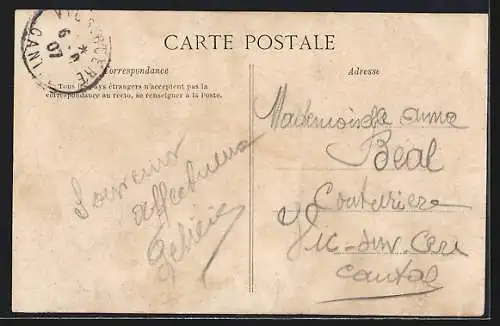 VIC-SUR-CÈRE
6-9
07
CANTAL
CARTE POSTALE
Correspondance
Adresse
Tous les pays étrangers n'acceptent pas la
correspondance au recto, se renseigner à la Poste.
Mademoiselle Anna
Béal
Couturière
Vic-sur Cere
Cantal
Souvenir
affectueux